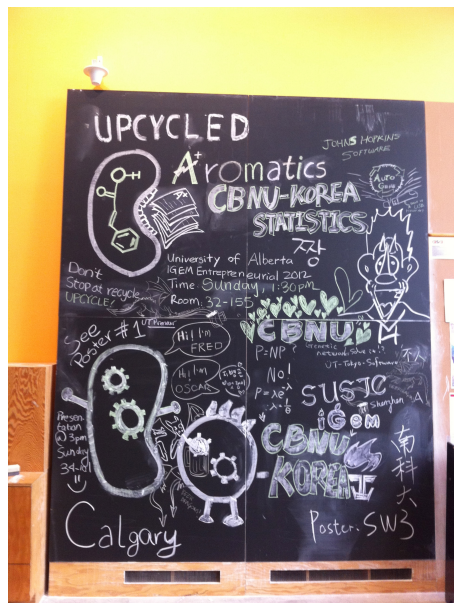 UPCYCLED
A+romatics
JOHNS HOPKINS
SOFTWARE
Auto
Gene
CBNU-KOREA
STATISTICS
짱
University of Alberta
IGEM Entrepreneurial 2012
Time Sunday, 1:30pm
Room 32-155
Don't
Stop at recycle
UPCYCLE!
See
Poster #1
Hi! I'm
FRED
Hi! I'm
OSCAR
CBNU
P=NP?
No!
UT-Tokyo-Software
SUSTC
Shenzhen
iGEM
CBNU
KOREA
南科大
Presen
tation
@ 3pm
Sunday
Calgary
Poster. SW3